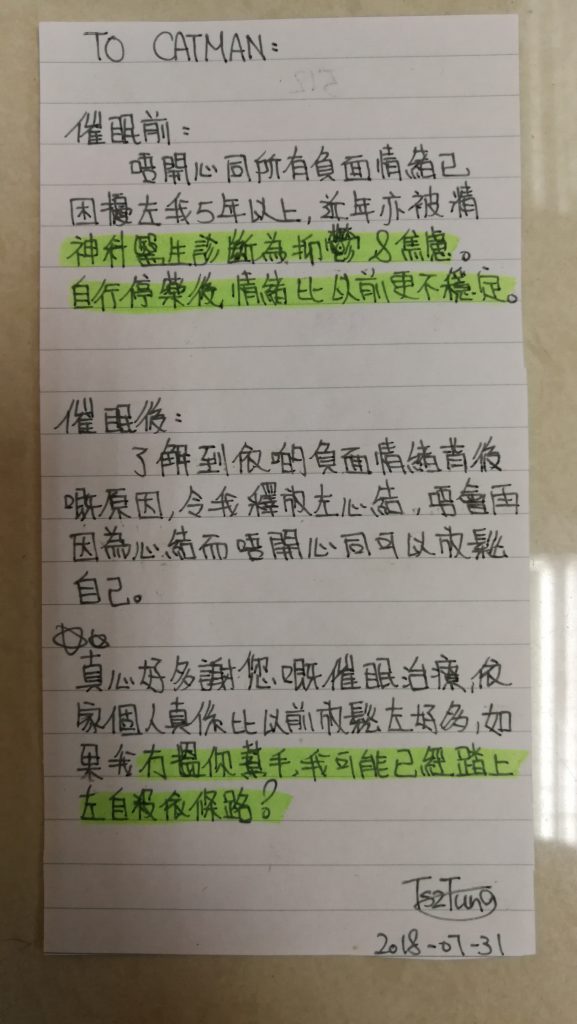 TO CATMAN:
催眠前:
唔開心同所有負面情緒已
困擾左我5年以上,近年亦被精
神科醫生診斷為抑鬱&焦慮。
自行停藥後,情緒比以前更不穩定。
催眠後:
了解到依啲負面情緒背後
嘅原因,令我釋放左心結,唔會再
因為心結而唔開心同可以放鬆
自己。
真心好多謝您嘅催眠治療,依
家個人真係比以前放鬆左好多,如
果我冇搵你幫手,我可能已經踏上
左自殺依條路?
TszTung
2018-07-31